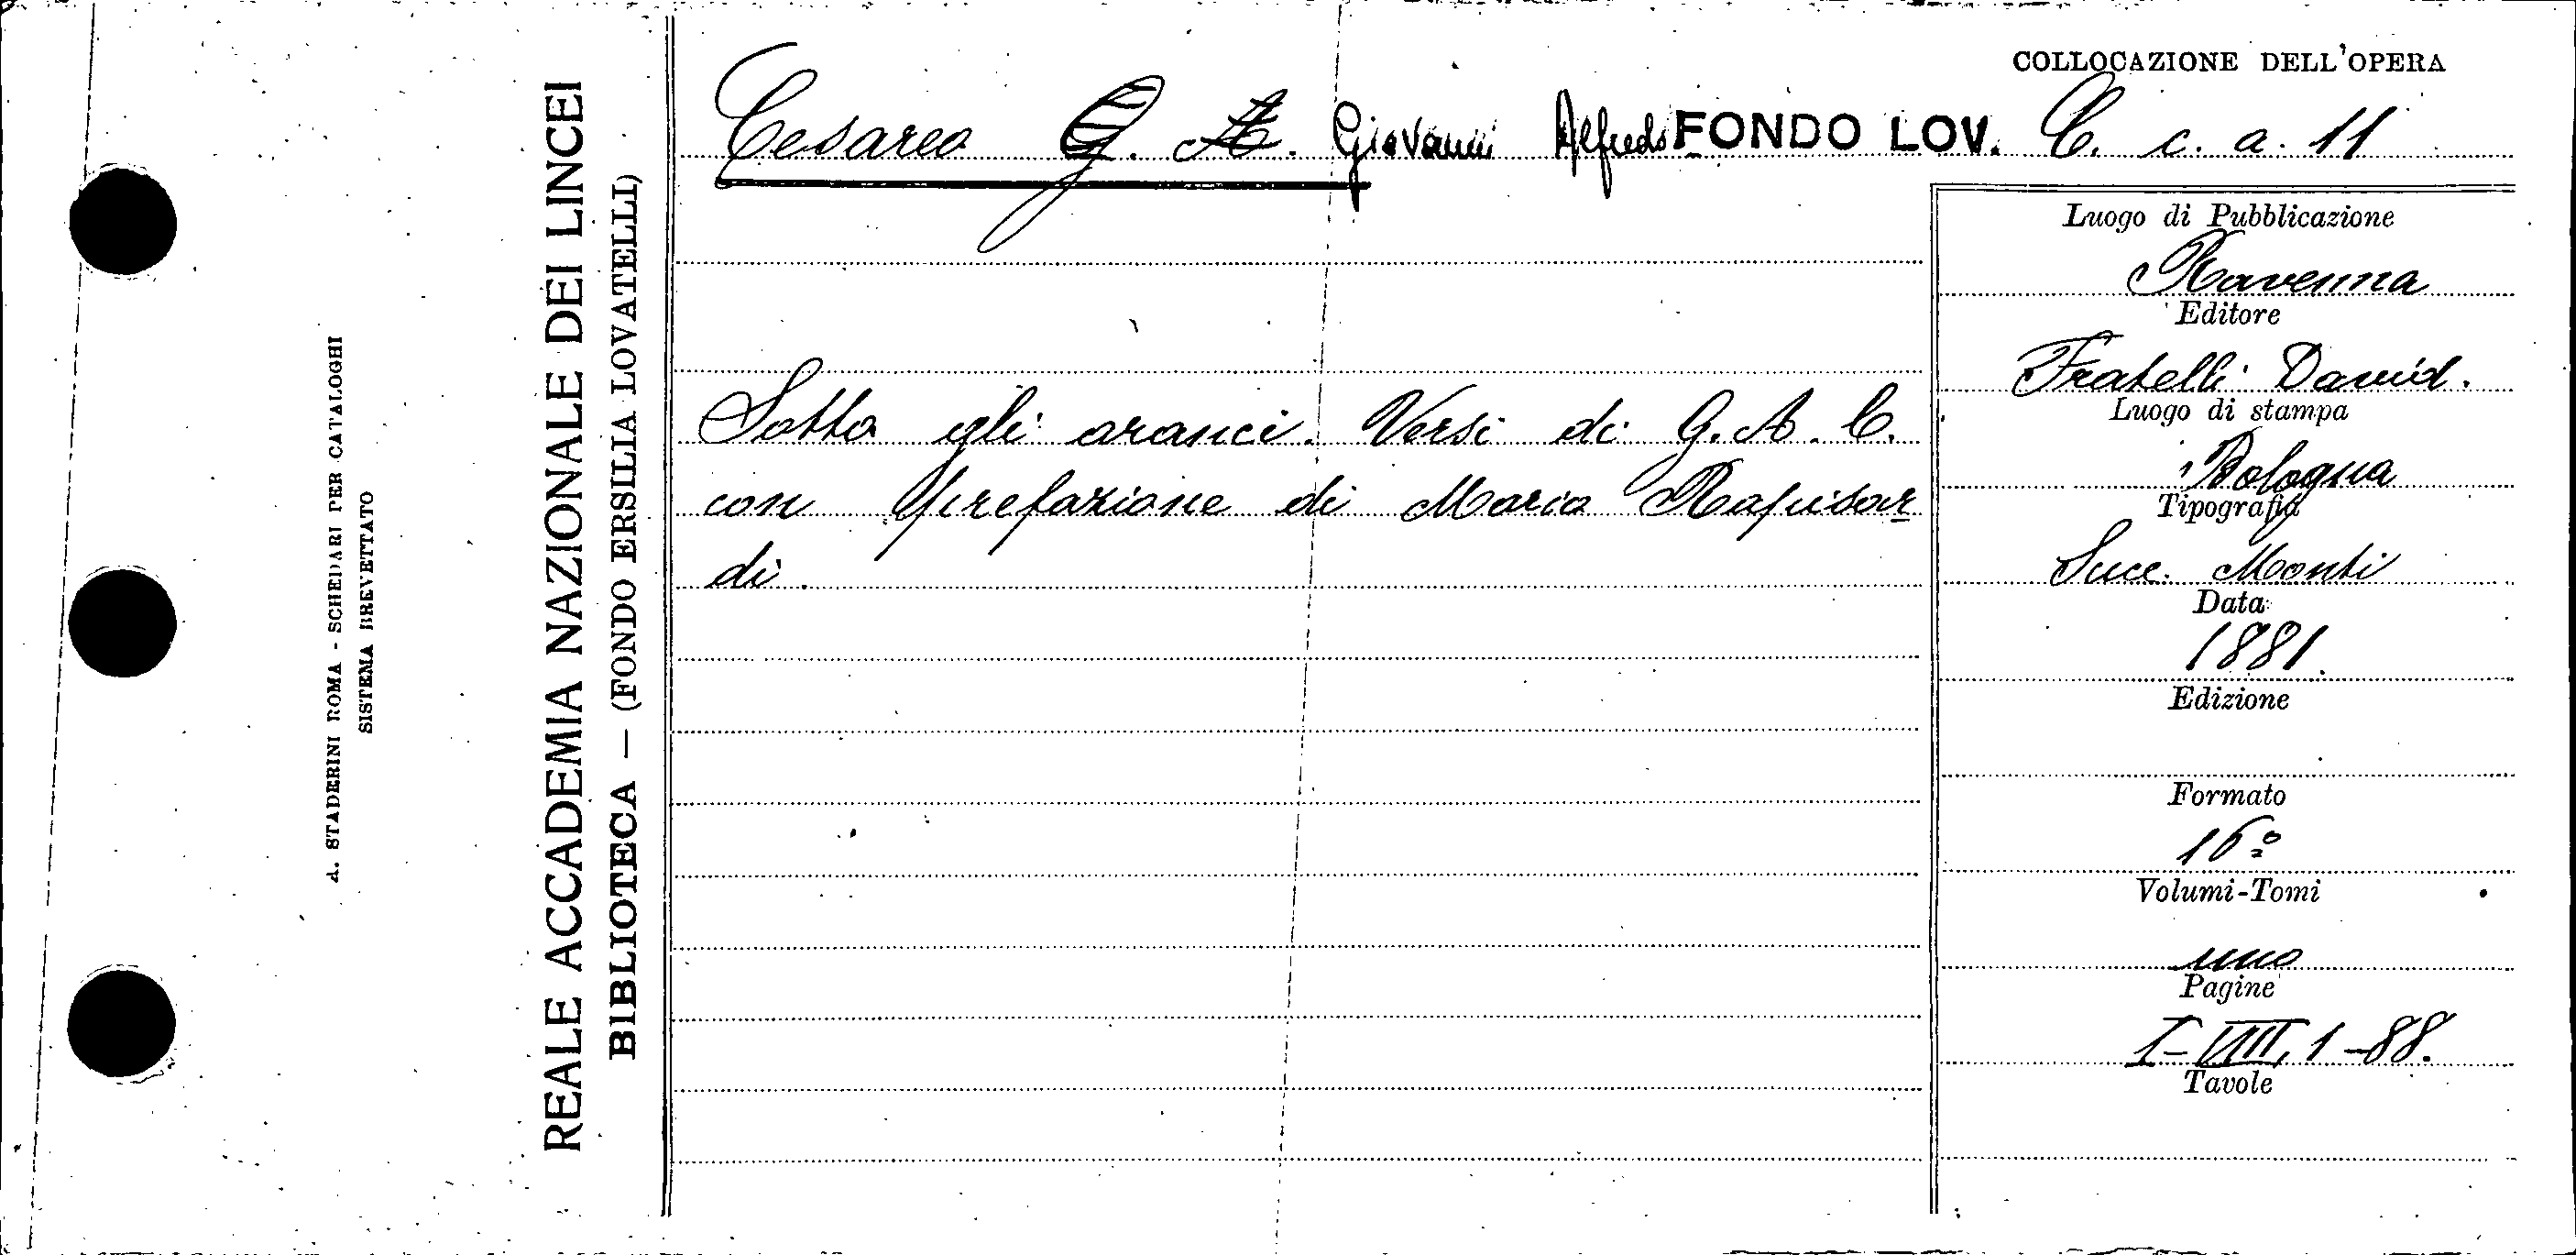 A. STADERINI ROMA - SCHEDARI PER CATALOGHI
SISTEMA BREVETTATO
REALE ACCADEMIA NAZIONALE DEI LINCEI
BIBLIOTECA — (FONDO ERSILIA LOVATELLI)
COLLOCAZIONE DELL'OPERA
Cesareo G. A. Giovanni Alfredo FONDO LOV. C. c. a. 11
Sotto gli aranci. Versi di G. A. C.
con prefazione di Mario Rapisar
di.
Luogo di Pubblicazione
Ravenna
Editore
Fratelli David.
Luogo di stampa
Bologna
Tipografia
Succ. Monti
Data
1881.
Edizione
Formato
16º
Volumi-Tomi
uno
Pagine
I-VIII, 1-88.
Tavole